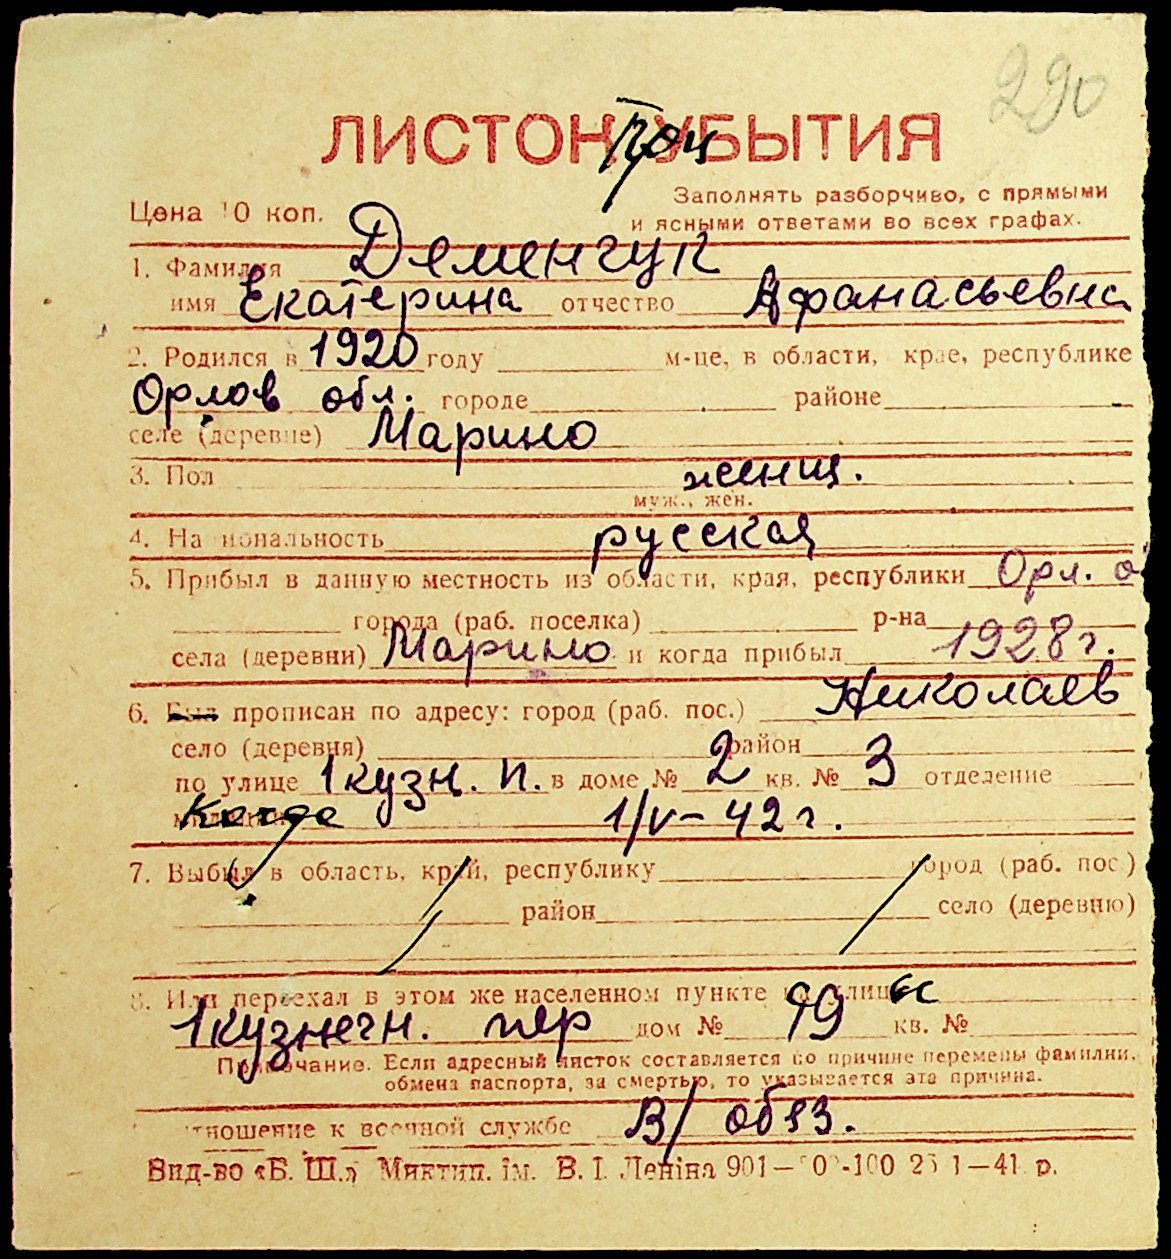 290
ЛИСТОК УБЫТИЯ
При
Цена 10 коп.
Заполнять разборчиво, с прямыми
и ясными ответами во всех графах.
1. Фамилия Деменчук
имя Екатерина отчество Афанасьевна
2. Родился в 1920 году м-це, в области, крае, республике
Орлов обл. городе районе
селе (деревне) Марино
3. Пол женщ.
муж., жен.
4. Национальность русская
5. Прибыл в данную местность из области, края, республики Орл. о
города (раб. поселка) р-на
села (деревни) Марино и когда прибыл 1928 г.
6. Был прописан по адресу: город (раб. пос.) Николаев
село (деревня) район
по улице 1 кузн. п. в доме № 2 кв. № 3 отделение
милиции Когда 1/V-42 г.
7. Выбыл в область, край, республику город (раб. пос.)
район село (деревню)
8. Или переехал в этом же населенном пункте на улицу
1 кузнечн. пер дом № 19 кв. №
Примечание. Если адресный листок составляется по причине перемены фамилии,
обмена паспорта, за смертью, то указывается эта причина.
отношение к военной службе В/ обяз.
Вид-во «Б. Ш.» Миктип. ім. В. І. Леніна 901- 1-41 р.